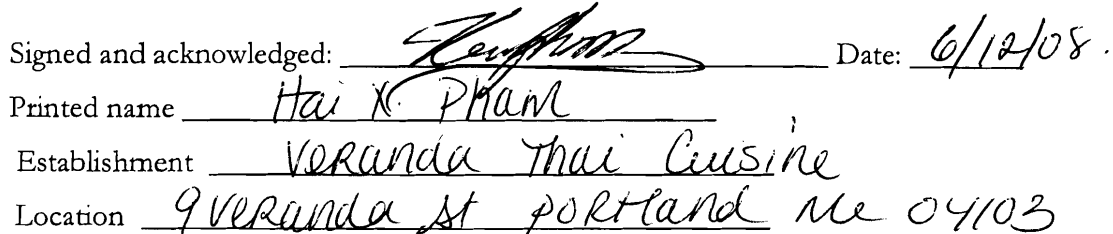 Signed and acknowledged: Date: 6/12/08.
Printed name Hai X. Pham
Establishment Veranda Thai Cuisine
Location 9 Veranda St Portland Me 04103